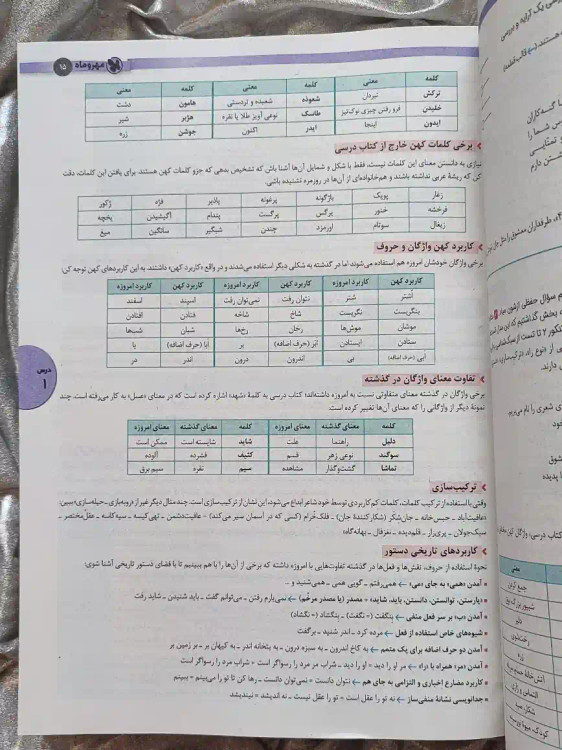 مهروماه ۱۵
کلمه معنی کلمه معنی کلمه معنی
ترکش تیردان شعوذه شعبده و تردستی هامون دشت
خلیدن فرو رفتن چیزی نوک‌تیز طاسک نوعی آویز طلا یا نقره هژبر شیر
ایدون اینجا ایدر اکنون جوشن زره
برخی کلمات کهن خارج از کتاب درسی
نیازی به دانستن معنای این کلمات نیست، فقط با شکل و شمایل آن‌ها آشنا باش که تشخیص بدهی که جزو کلمات کهن هستند. برای یافتن این کلمات، دقت
کن که ریشهٔ عربی نداشته باشند و هم‌خانواده‌ای از آن‌ها در روزمره نشنیده باشی.
زغار پوپک بازگونه پرغونه پاذیر فژه ژکور
فرخشه خنور برگس پرگست پندام آگیشیدن یخچه
ریمال سوتام اورمزد چندن شبگیر ساتگین میغ
کاربرد کهن واژگان و حروف
برخی واژگان خودشان امروزه هم استفاده می‌شوند اما در گذشته به شکلی دیگر استفاده می‌شدند و در واقع «کاربرد کهن» داشتند. به این کاربردهای کهن توجه کن:
کاربرد کهن کاربرد امروزه کاربرد کهن کاربرد امروزه کاربرد کهن کاربرد امروزه
اُشتر شتر نتوان رفت نمی‌توان رفت اسپند اسفند
بنگریست نگریست شاخ شاخه فتادن افتادن
موشان موش‌ها رخان رخ‌ها شبان شب‌ها
ستادن ایستادن اَبَر (حرف اضافه) بر اَبا (حرف اضافه) با
اَبی (حرف اضافه) بی اندرون درون اندر در
تفاوت معنای واژگان در گذشته
برخی واژگان در گذشته معنای متفاوتی نسبت به امروزه داشته‌اند؛ کتاب درسی به کلمهٔ «شهد» اشاره کرده است که در معنای «عسل» به کار می‌رفته است. چند
نمونهٔ دیگر از واژگانی را که معنای آن‌ها تغییر کرده است
کلمه معنای گذشته معنای امروزه کلمه معنای گذشته معنای امروزه
دلیل راهنما علت شاید شایسته است ممکن است
سوگند نوعی زهر قسم کثیف فشرده آلوده
تماشا گشت‌وگذار مشاهده سیم نقره سیم برق
ترکیب‌سازی
وقتی با استفاده از ترکیب کلمات، کلمات کم‌کاربردی توسط خود شاعر ابداع می‌شود، این نشان از ترکیب‌سازی است. چند مثال دیگر غیر از «روبه‌بازی ـ حیله‌سازی» ببین:
عافیت‌آباد ـ حبس‌خانه ـ جان‌شکر (شکارکنندهٔ جان) ـ فلک‌خُرام (کسی که در آسمان سیر می‌کند) ـ عافیت‌دشمن ـ تهی‌کیسه ـ سیه‌کاسه ـ عقل مختصر ـ
سبک‌جولان ـ پری‌بار ـ قلم‌دیده ـ نغزفال ـ بهانه‌گاه
کاربردهای تاریخی دستور
نحوهٔ استفاده از حروف، نقش‌ها و فعل‌ها در گذشته تفاوت‌هایی با امروزه داشته که برخی از آن‌ها را با هم ببینیم تا با فضای دستور تاریخی آشنا شوی:
آمدن «همی» به جای «می» ← همی‌رفتم ـ گویی همی ـ همی‌شنید و ...
«یارستن، توانستن، دانستن، باید، شاید» + مصدر (یا مصدر مرخّم) ← نمی‌یارم رفتن ـ می‌توانم گفت ـ باید شنیدن ـ شاید رفت
آمدن «ب» بر سر فعل منفی ← بنگفت (= نگفت) ـ بنگشاد (= نگشاد)
شیوه‌های خاص استفاده از فعل ← مرده کرد ـ اندر شنید ـ برگفت
آمدن دو حرف اضافه برای یک متمم ← به کاخ اندرون ـ به سبزه درون ـ به بتخانه اندر ـ به کیهان بر ـ بر زمین بر
آمدن «مر» همراه با «را» ← مر او را دید = او را دید ـ شراب مر مرد را رسواگر است = شراب مرد را رسواگر است
کاربرد مضارع اخباری و التزامی به جای هم ← نتوان دانست = نمی‌توان دانست ـ رها کن تا تو را می‌بینم = ببینم
جدانویسی نشانهٔ منفی‌ساز ← نه تو را عقل است = تو را عقل نیست ـ نه اندیشد = نیندیشد
درس
۱